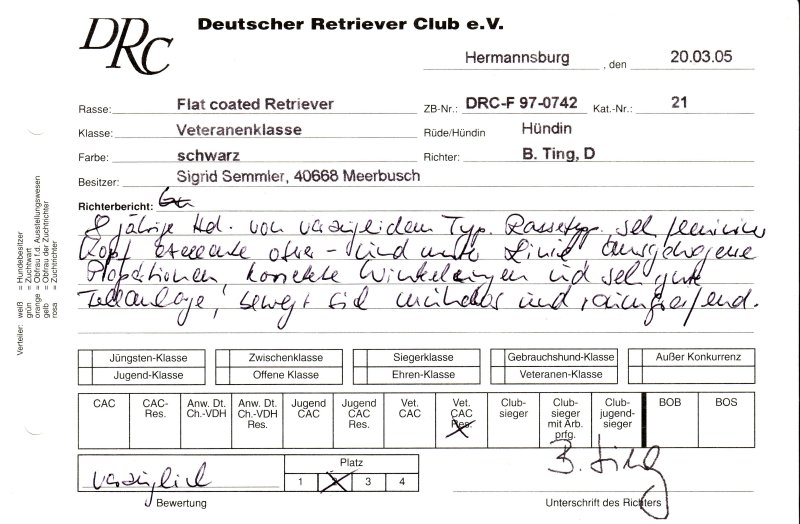 DRC
Deutscher Retriever Club e.V.
Hermannsburg , den 20.03.05
Rasse: Flat coated Retriever ZB-Nr.: DRC-F 97-0742 Kat.-Nr.: 21
Klasse: Veteranenklasse Rüde/Hündin Hündin
Farbe: schwarz Richter: B. Ting, D
Besitzer: Sigrid Semmler, 40668 Meerbusch
Richterbericht:
8 jährige Hd. von vorzüglichem Typ. Rassetyp. sehr femininer
Kopf exzellente ober- und untere Linie ausgewogene
Proportionen, korrekte Winkelungen und sehr gute
bewegt sich mühelos und raumgreifend.
Verteiler: weiß = Hundebesitzer
grün = Zuchtwart
orange = Obfrau f.d. Ausstellungswesen
gelb = Obfrau der Zuchtrichter
rosa = Zuchtrichter
Jüngsten-Klasse Zwischenklasse Siegerklasse Gebrauchshund-Klasse Außer Konkurrenz
Jugend-Klasse Offene Klasse Ehren-Klasse Veteranen-Klasse
CAC CAC- Anw. Dt. Anw. Dt. Jugend Jugend Vet. Vet. Club- Club- Club- BOB BOS
Res. Ch.-VDH Ch.-VDH CAC CAC CAC CAC sieger sieger jugend-
Res. Res. Res. mit Arb. sieger
prfg.
vorzüglich Platz B. Ting
1 2 3 4
Bewertung Unterschrift des Richters